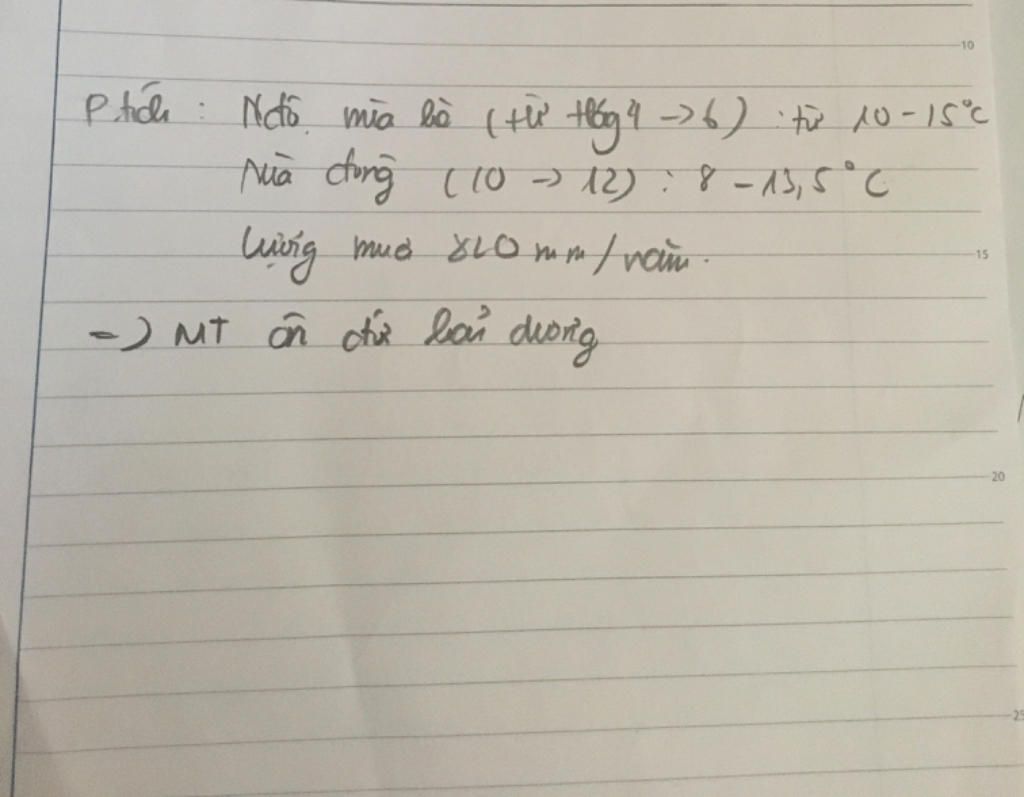 P.tích : Nđộ mùa hè (từ thág 4 -> 6) : từ 10 - 15°C
Mùa đông (10 -> 12) : 8 - 13,5°C
Lượng mưa 820 mm/năm.
=> MT ôn đới hải dương
10
15
20
25